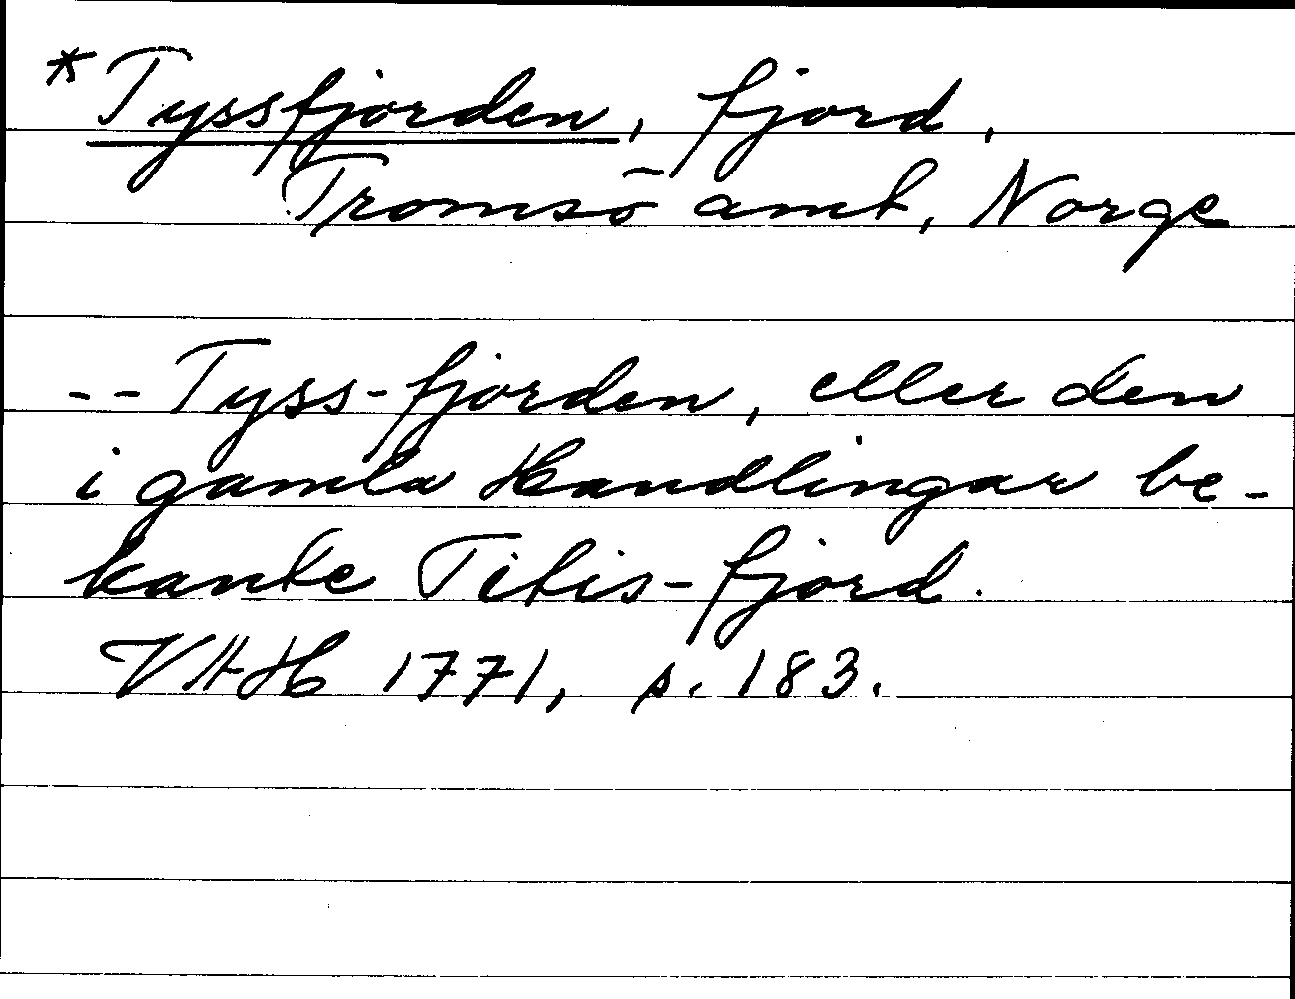 *Tyssfjorden, fjord,
Tromsö amt, Norge
-- Tyss-fjorden, eller den
i gamla Handlingar be-
kante Titis-fjord.
VAH 1771, s. 183.